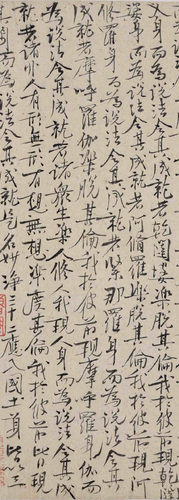 叉身而為說法令其成就若乾闥婆樂脫其倫我於彼前現乾闥
婆身而為說法令其成就若阿修羅樂脫其倫我於彼前現阿
修羅身而為說法令其成就若緊那羅身而為說法令其
成就若摩呼羅伽樂脫其倫我於彼前現摩呼羅身伽而
為說法令其成就若諸眾生樂人修人我現人身而為說法令其成
就若諸非人有形無形有想無想樂度其倫我於彼前皆現
其身而為說法令其成就是名妙淨三十二應入國土身皆以三